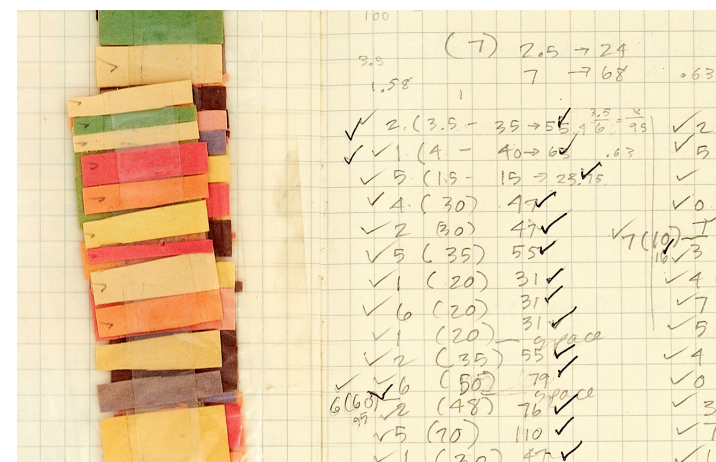 100
(7) 2.5 → 24
3.5
7 → 68 .63
1.58
1
✓ 2. (3.5 - 35 → 55.4 3.5/6 = x/95 ✓ 2
✓ ✓ 1 (4. - 40 → 63 ✓ .63 ✓ 5
✓ 5 (1.5 - 15 → 23.75 ✓ ✓
✓ 4. (30) 47 ✓ ✓ 0
✓ 2 (30) 47 ✓ ✓ 7 (10) 1
✓ 5 (35) 55 ✓ 16 ✓ 3
✓ 1 (20) 31 ✓ ✓ 4
✓ 6 (20) 31 ✓ ✓ 7
✓ 1 (20) 31 ✓ space ✓ 5
✓ 2 (35) 55 ✓ ✓ 4
✓ ✓ 6 (50) 79 ✓ space ✓ 0
6(60) 95 ✓ 2 (48) 76 ✓ ✓ 3
✓ 5 (70) 110 ✓ ✓ 7
✓ 1 (30) 47 ✓ ✓ 1